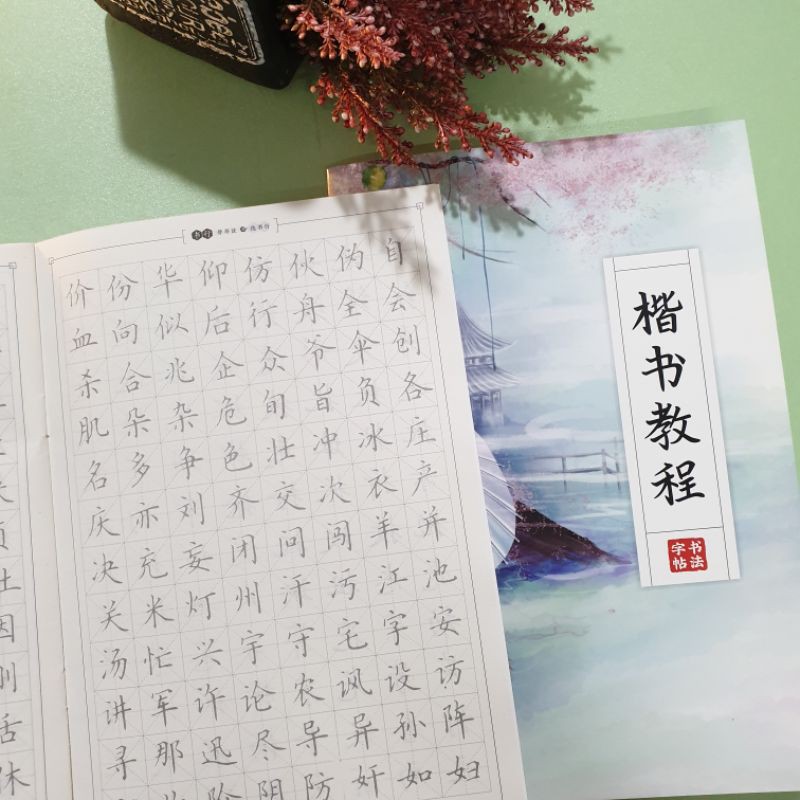 价份华仰仿伙伪自
血向似后行舟全会
杀合兆企众爷伞创
肌朵杂危旬旨负各
名多争色壮冲冰庄
庆亦刘齐交次衣产
决充妄闭问闯羊并
关米灯州汗污江池
汤忙兴宇守宅字安
讲军许论农讽设访
寻那迅尽导异孙阵
阴防奸如妇
因
舌
休
楷书教程
书法
字帖